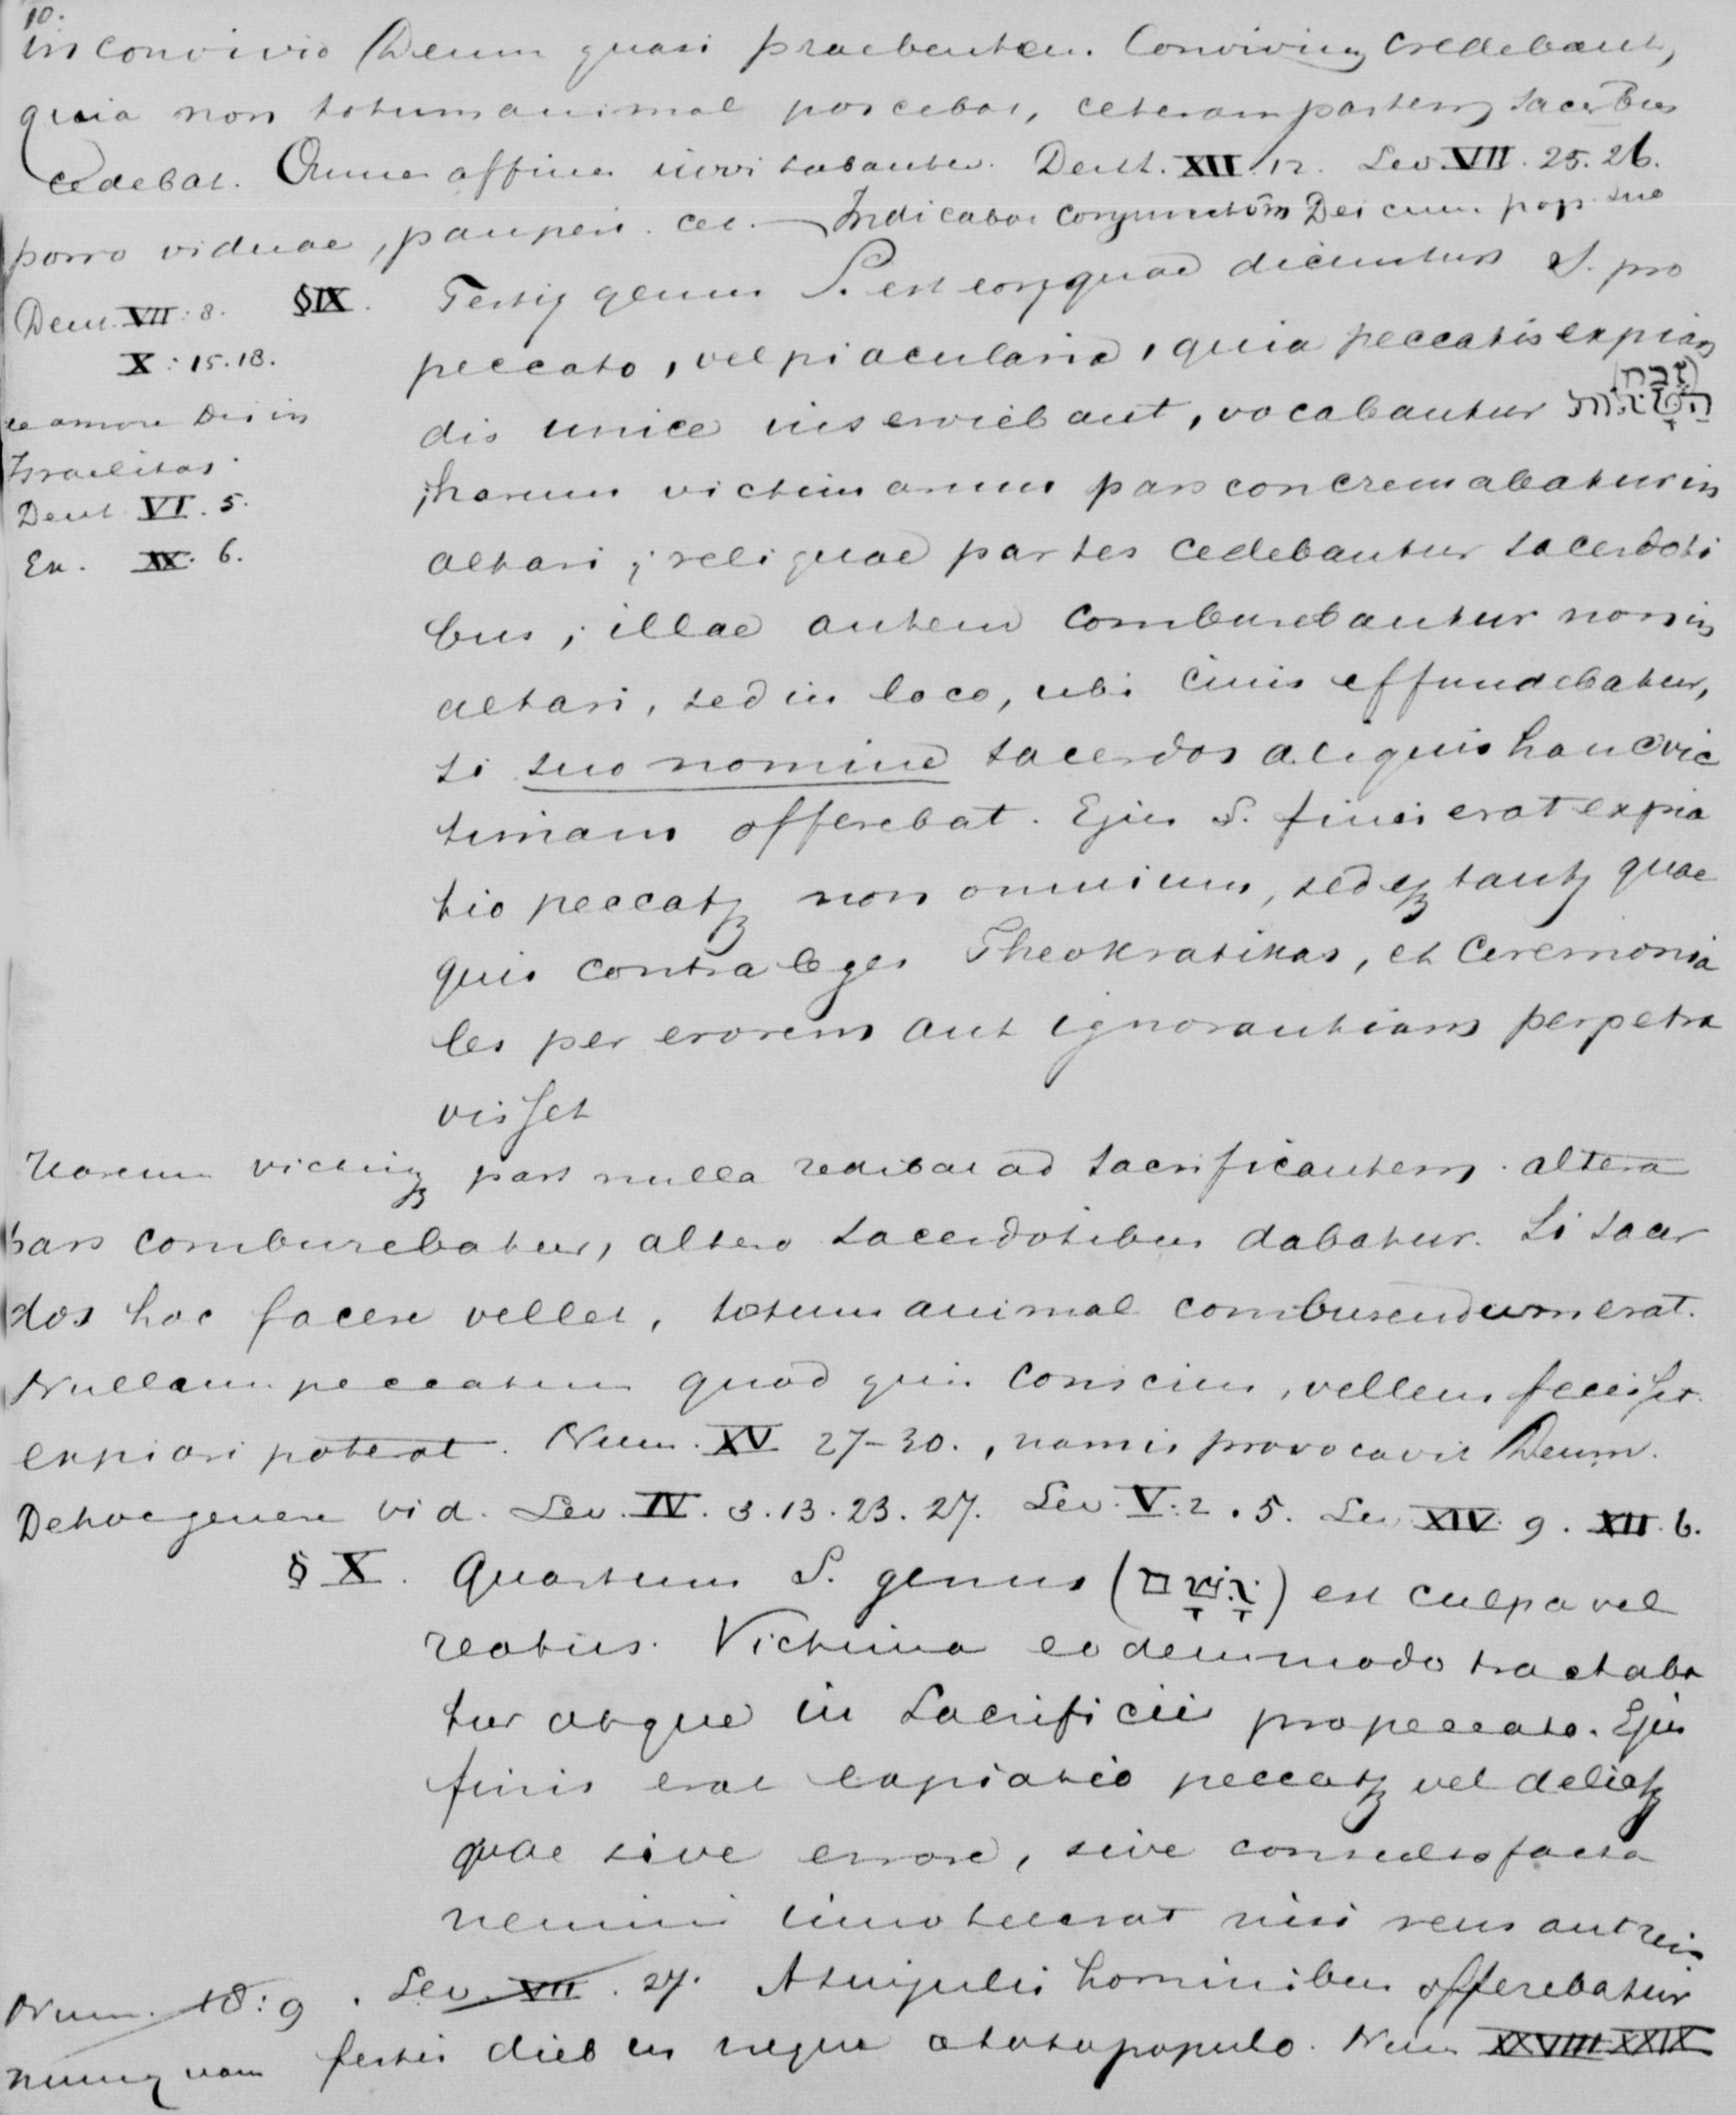 10.
in convivio Deum quasi praebentem. Convivium credebant,
quia non totum animal poscebat, ceteram partem sacerdotibus
cedebat. Omnes affines invitabantur. Deut. XII. 12. Lev. VII. 25. 26.
porro viduae, pauperi. cet. — Indicabat conjunctionem Dei cum pop. suo
Deut. VII: 8.
X: 15. 18.
de amore Dei in
Israelitas.
Deut VI. 5.
Ex. XX. 6.
§ IX. Tertium genus S. est eorum quae dicuntur S. pro
peccato, vel piacularia, quia peccatis expian
dis unice inserviebant, vocabantur
(זבח)
; harum victimarum pars concremabatur in
altari; reliquae partes cedebantur sacerdoti
bus; illae autem comburebantur non in
altari, sed in loco, ubi cinis effundebatur,
si suo nomine sacerdos aliquis hanc vic
timam offerebat. Ejus S. finis erat expia
tio peccatorum non omnium, sed eorum tantum quae
quis contra leges Theokratikas, et Ceremonia
les per erorem aut ignorantiam perpetra
visset
Harum victimarum pars nulla redibat ad sacrificantem. altera
pars comburebatur, altera sacerdotibus dabatur. Si sacer
dos hoc facere vellet, totum animal comburendum erat.
Nullum peccatum quod quis conscius, vellens fecisset.
expiari poterat. Num. XV 27-30., nam is provocavit Deum.
De hoc genere vid. Lev. IV. 3. 13. 23. 27. Lev. V: 2. 5. Lev XIV. 9. XII. 6.
§ X. Quartum S. genus () est culpa vel
reatus. Victima eodem modo tractaba
tur atque in Sacrificiis pro peccato. Ejus
finis erat expiatio peccatorum vel delictorum
quae sive errore, sive consulto facta
nemini innotuerat nisi reus aut reis
. Lev. XVII. 27. A singulis hominibus offerebatur
Num. 18: 9
festis diebus neque a toto populo. Num XXVIII XXIX